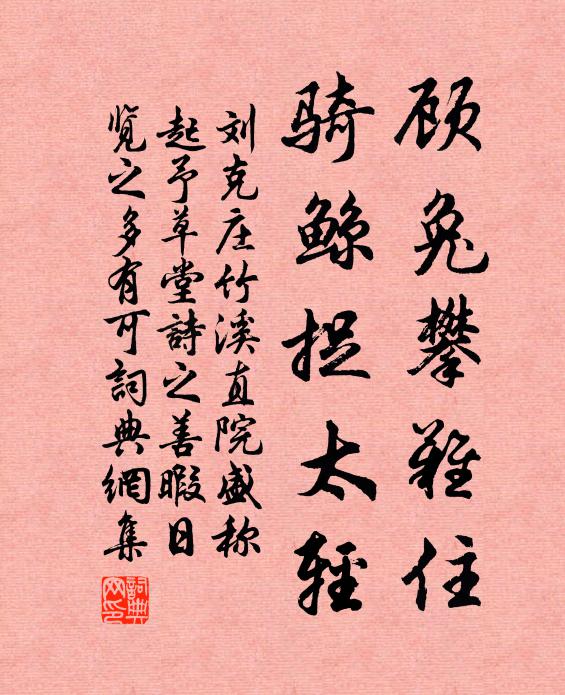 顾兔攀难住
骑鲸捉太轻
刘克庄竹溪直院盛称
起予草堂詩之善暇日
览之多有可詞典網集
詞典网印